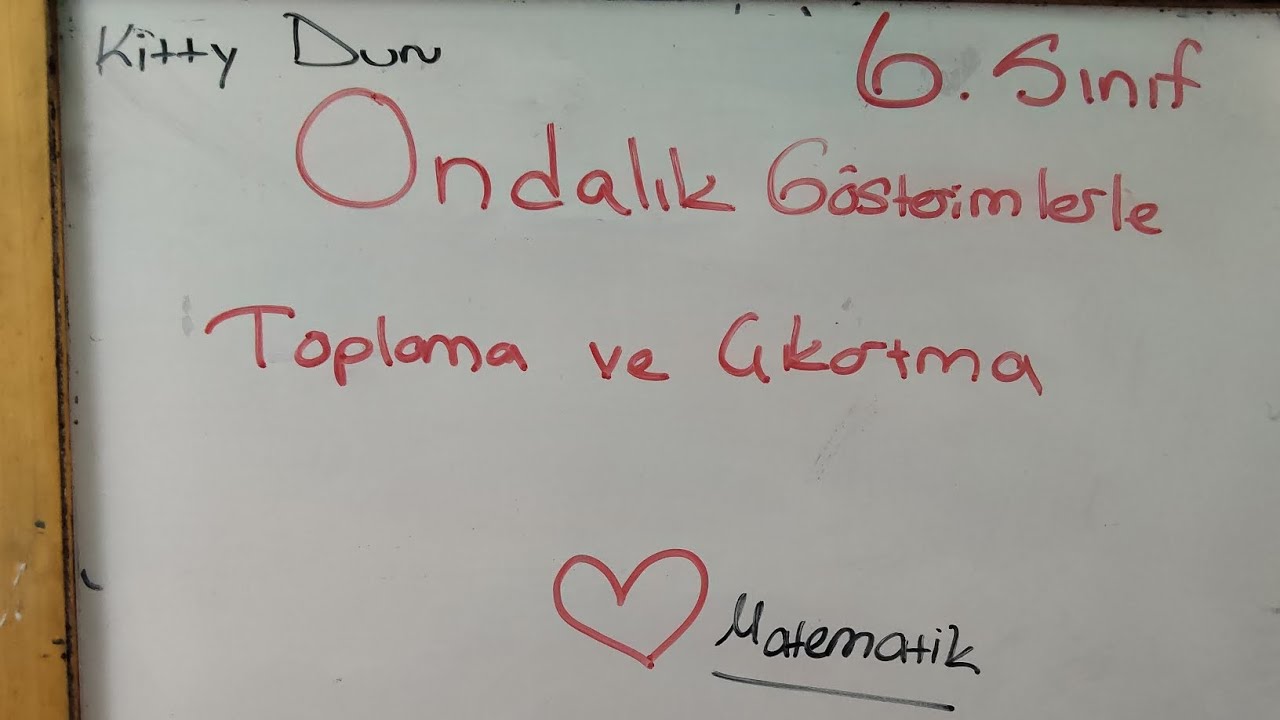 Kitty Duru
6. Sınıf
Ondalık Gösterimlerle
Toplama ve Çıkartma
Matematik